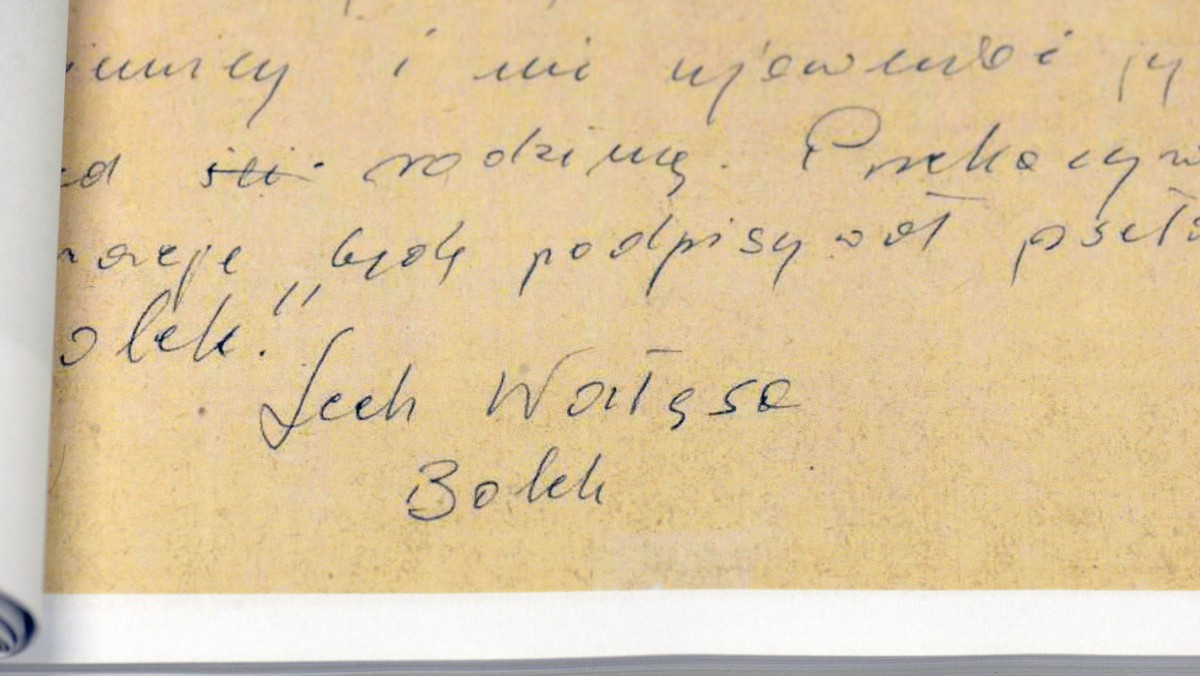 i nie ujawniać jej
rodziną. Przekazyw
będę podpisywał pseud
olek."
Lech Wałęsa
Bolek